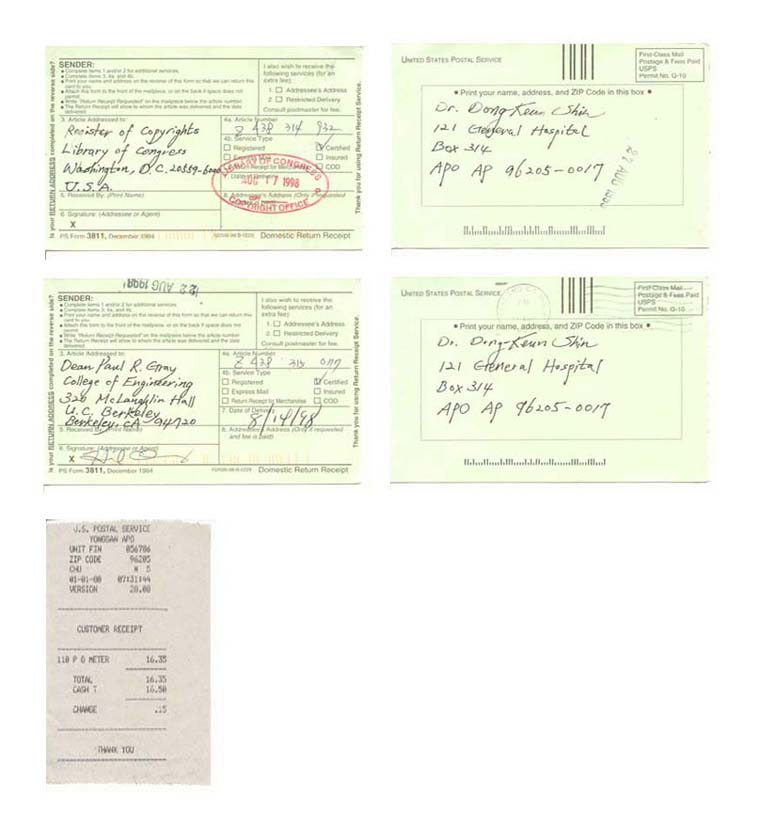 Is your RETURN ADDRESS completed on the reverse side?
SENDER:
Complete items 1 and/or 2 for additional services.
Complete items 3, 4a, and 4b.
Print your name and address on the reverse of this form so that we can return this
card to you.
Attach this form to the front of the mailpiece, or on the back if space does not
permit.
Write "Return Receipt Requested" on the mailpiece below the article number.
The Return Receipt will show to whom the article was delivered and the date
delivered.
I also wish to receive the
following services (for an
extra fee):
1. Addressee's Address
2. Restricted Delivery
Consult postmaster for fee.
3. Article Addressed to:
Register of Copyrights
Library of Congress
Washington, D.C. 20559-6000
U.S.A.
4a. Article Number
Z 438 314 932
4b. Service Type
Registered
Certified
Express Mail
Insured
Return Receipt for Merchandise
COD
LIBRARY OF CONGRESS
AUG 17 1998
COPYRIGHT OFFICE
5. Received By: (Print Name)
8. Addressee's Address (Only if requested
6. Signature: (Addressee or Agent)
X
PS Form 3811, December 1994
Domestic Return Receipt
Thank you for using Return Receipt Service.
UNITED STATES POSTAL SERVICE
First-Class Mail
Postage & Fees Paid
USPS
Permit No. G-10
• Print your name, address, and ZIP Code in this box •
Dr. Dong-Keun Shin
121 General Hospital
Box 314
APO AP 96205-0017
22 AUG
Is your RETURN ADDRESS completed on the reverse side?
22 AUG 1998
SENDER:
Complete items 1 and/or 2 for additional services.
Complete items 3, 4a, and 4b.
Print your name and address on the reverse of this form so that we can return this
card to you.
Attach this form to the front of the mailpiece, or on the back if space does not
permit.
Write "Return Receipt Requested" on the mailpiece below the article number.
The Return Receipt will show to whom the article was delivered and the date
delivered.
I also wish to receive the
following services (for an
extra fee):
1. Addressee's Address
2. Restricted Delivery
Consult postmaster for fee.
3. Article Addressed to:
Dean Paul R. Gray
College of Engineering
320 McLaughlin Hall
U.C. Berkeley
Berkeley, CA 94720
4a. Article Number
Z 438 315 077
4b. Service Type
Registered
Certified
Express Mail
Insured
Return Receipt for Merchandise
COD
7. Date of Delivery
8/14/98
5. Received By: (Print Name)
8. Addressee's Address (Only if requested
and fee is paid)
6. Signature: (Addressee or Agent)
X
PS Form 3811, December 1994
Domestic Return Receipt
Thank you for using Return Receipt Service.
UNITED STATES POSTAL SERVICE
First-Class Mail
Postage & Fees Paid
USPS
Permit No. G-10
• Print your name, address, and ZIP Code in this box •
Dr. Dong-Keun Shin
121 General Hospital
Box 314
APO AP 96205-0017
U.S. POSTAL SERVICE
YONGSAN APO
UNIT FIN 056786
ZIP CODE 96205
CHU # 5
01-01-80 07:31:44
VERSION 20.00
CUSTOMER RECEIPT
110 P O METER 16.35
TOTAL 16.35
CASH T 16.50
CHANGE .15
THANK YOU